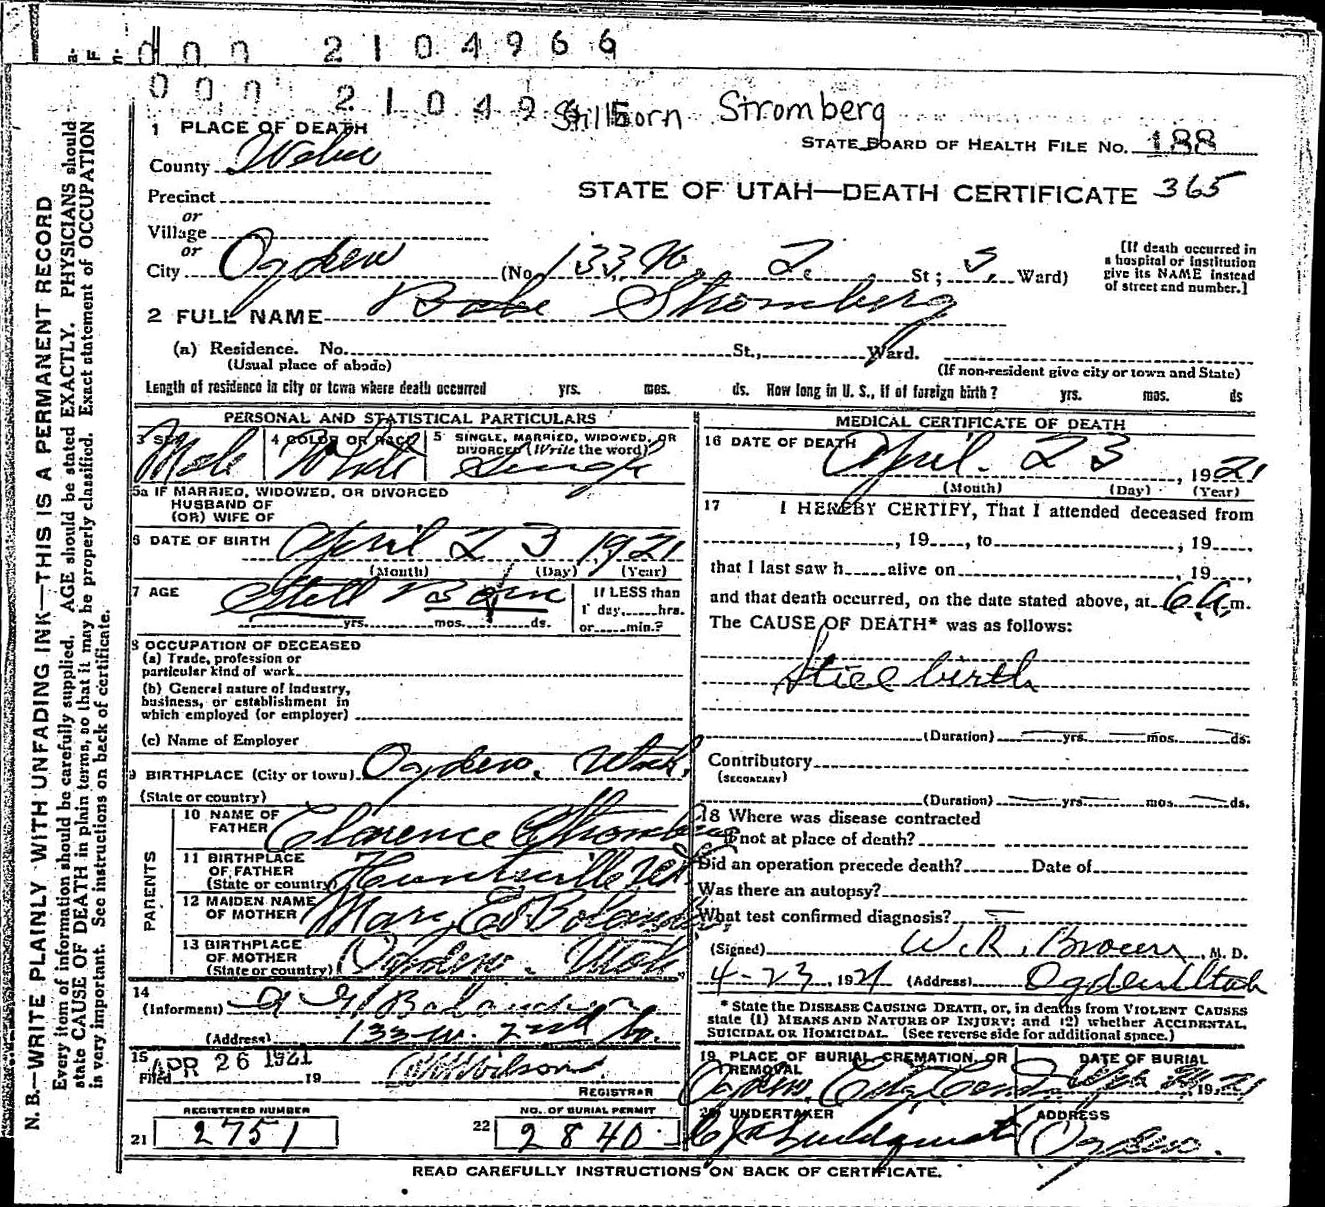 a. F n.
000 2104966
000 2104965
Stillborn Stromberg
1 PLACE OF DEATH
STATE BOARD OF HEALTH FILE NO. 188
County Weber
STATE OF UTAH—DEATH CERTIFICATE 365
Precinct
or
Village
or
City Ogden (No. 133 W. 2. St; 5. Ward)
[If death occurred in a hospital or institution give its NAME instead of street and number.]
2 FULL NAME Babe Stromberg
(a) Residence. No. St., Ward.
(Usual place of abode) (If non-resident give city or town and State)
Length of residence in city or town where death occurred yrs. mos. ds. How long in U. S., if of foreign birth? yrs. mos. ds
PERSONAL AND STATISTICAL PARTICULARS
3 SEX Male
4 COLOR OR RACE White
5 SINGLE, MARRIED, WIDOWED, OR DIVORCED (Write the word) Single
5a IF MARRIED, WIDOWED, OR DIVORCED
HUSBAND OF
(OR) WIFE OF
6 DATE OF BIRTH April 23 1921
(Month) (Day) (Year)
7 AGE Still Born
yrs. mos. ds.
If LESS than
1 day, hrs.
or min.?
8 OCCUPATION OF DECEASED
(a) Trade, profession or
particular kind of work
(b) General nature of Industry,
business, or establishment in
which employed (or employer)
(c) Name of Employer
9 BIRTHPLACE (City or town) Ogden, Utah.
(State or country)
PARENTS
10 NAME OF FATHER Clarence Stromberg
11 BIRTHPLACE OF FATHER (State or country) Huntsville Ut
12 MAIDEN NAME OF MOTHER Mary E.
13 BIRTHPLACE OF MOTHER (State or country) Ogden. Utah
14
(Informent)
(Address) 133 W. 2nd St.
15 Filed APR 26 1921 19 Wilson.
REGISTRAR
REGISTERED NUMBER
21 2751
NO. OF BURIAL PERMIT
22 2840
MEDICAL CERTIFICATE OF DEATH
16 DATE OF DEATH April. 23, 1921
(Month) (Day) (Year)
17 I HEREBY CERTIFY, That I attended deceased from
, 19 , to , 19 ,
that I last saw h alive on , 19 ,
and that death occurred, on the date stated above, at 6 A. m.
The CAUSE OF DEATH* was as follows:
Still birth
(Duration) yrs. mos. ds.
Contributory
(SECONDARY)
(Duration) yrs. mos. ds.
18 Where was disease contracted
if not at place of death?
Did an operation precede death? Date of
Was there an autopsy?
What test confirmed diagnosis?
(Signed) W. R. Brown, M. D.
4-23, 1921 (Address) Ogden Utah
* State the DISEASE CAUSING DEATH, or, in deaths from VIOLENT CAUSES
state (1) MEANS AND NATURE OF INJURY; and (2) whether ACCIDENTAL,
SUICIDAL OR HOMICIDAL. (See reverse side for additional space.)
19 PLACE OF BURIAL, CREMATION, OR REMOVAL Ogden City Cem
DATE OF BURIAL 1921
20 UNDERTAKER Lindquist
ADDRESS Ogden.
READ CAREFULLY INSTRUCTIONS ON BACK OF CERTIFICATE.
N. B.—WRITE PLAINLY WITH UNFADING INK—THIS IS A PERMANENT RECORD
Every item of information should be carefully supplied. AGE should be stated EXACTLY. PHYSICIANS should
state CAUSE OF DEATH in plain terms, so that it may be properly classified. Exact statement of OCCUPATION
is very important. See instructions on back of certificate.